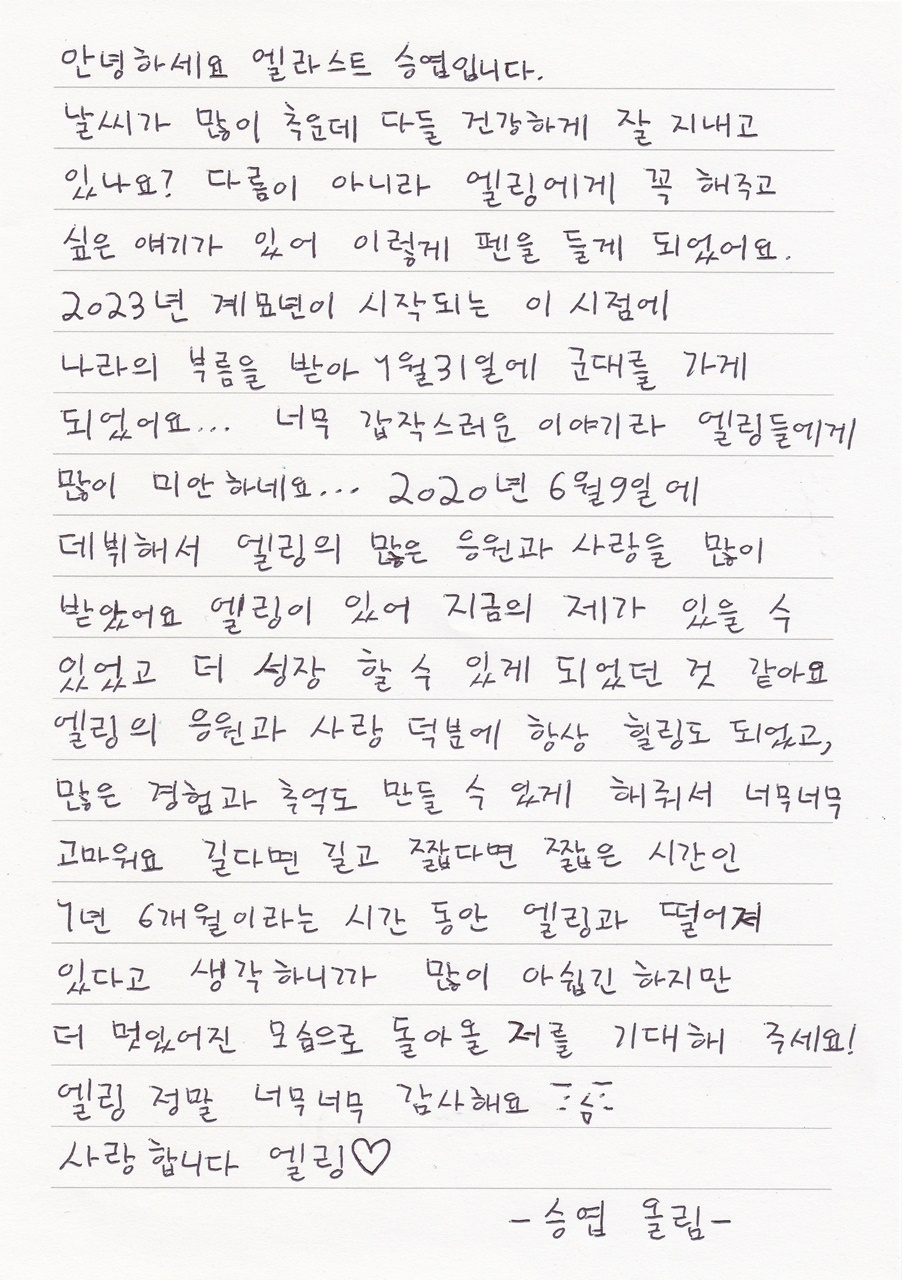 안녕하세요 엘라스트 승엽입니다.
날씨가 많이 추운데 다들 건강하게 잘 지내고
있나요? 다름이 아니라 엘링에게 꼭 해주고
싶은 얘기가 있어 이렇게 펜을 들게 되었어요.
2023년 계묘년이 시작되는 이 시점에
나라의 부름을 받아 1월31일에 군대를 가게
되었어요... 너무 갑작스러운 이야기라 엘링들에게
많이 미안하네요... 2020년 6월9일에
데뷔해서 엘링의 많은 응원과 사랑을 많이
받았어요 엘링이 있어 지금의 제가 있을 수
있었고 더 성장 할 수 있게 되었던 것 같아요
엘링의 응원과 사랑 덕분에 항상 힐링도 되었고,
많은 경험과 추억도 만들 수 있게 해줘서 너무너무
고마워요 길다면 길고 짧다면 짧은 시간인
1년 6개월이라는 시간 동안 엘링과 떨어져
있다고 생각하니까 많이 아쉽긴 하지만
더 멋있어진 모습으로 돌아올 저를 기대해 주세요!
엘링 정말 너무너무 감사해요
사랑합니다 엘링♡
-승엽 올림-